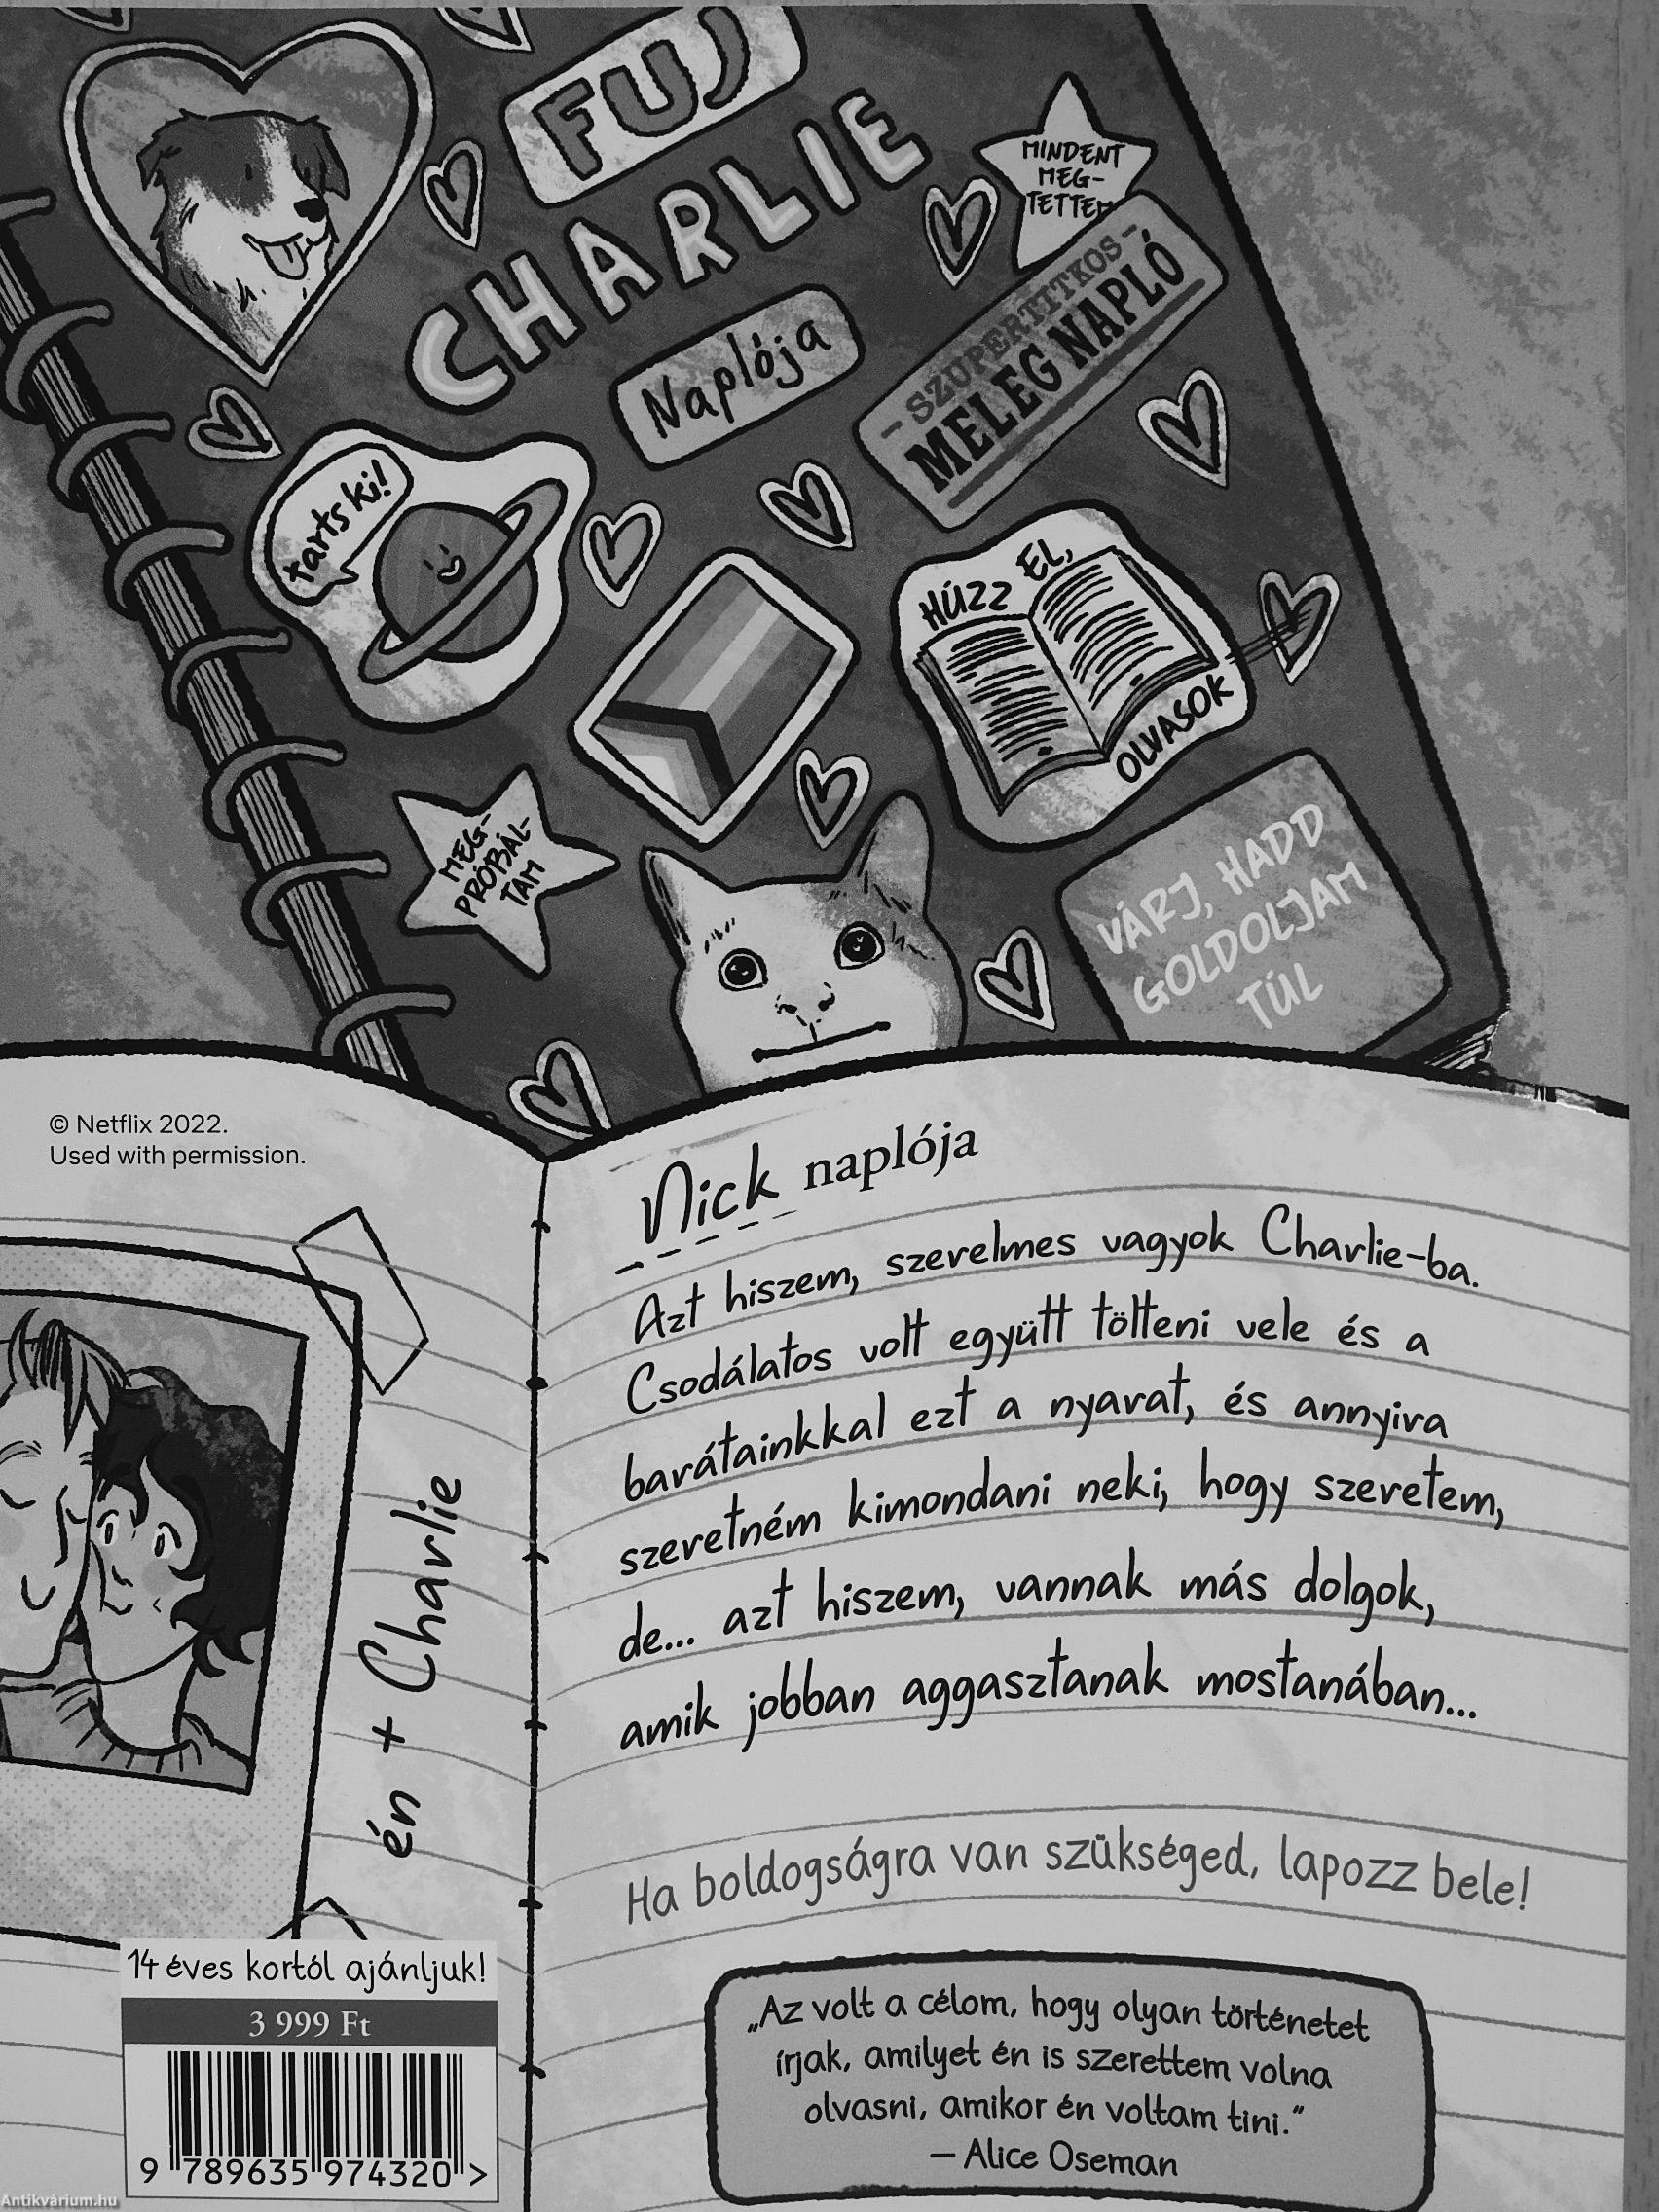 FUJ
CHARLIE
Naplója
MINDENT
MEG-
TETTEM
- SZUPERTITKOS -
MELEG NAPLÓ
tarts ki!
HÚZZ EL,
OLVASOK
MEG-
PRÓBÁL-
TAM
VÁRJ, HADD
GOLDOLJAM
TÚL
© Netflix 2022.
Used with permission.
én + Charlie
Nick naplója
Azt hiszem, szerelmes vagyok Charlie-ba.
Csodálatos volt együtt tölteni vele és a
barátainkkal ezt a nyarat, és annyira
szeretném kimondani neki, hogy szeretem,
de... azt hiszem, vannak más dolgok,
amik jobban aggasztanak mostanában...
Ha boldogságra van szükséged, lapozz bele!
„Az volt a célom, hogy olyan történetet
írjak, amilyet én is szerettem volna
olvasni, amikor én voltam tini.”
– Alice Oseman
14 éves kortól ajánljuk!
3 999 Ft
9 789635 974320 >
Antikvárium.hu